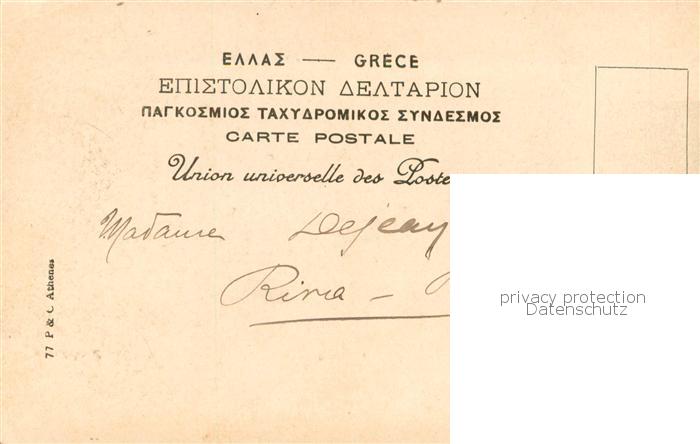 ΕΛΛΑΣ — GRÈCE
ΕΠΙΣΤΟΛΙΚΟΝ ΔΕΛΤΑΡΙΟΝ
ΠΑΓΚΟΣΜΙΟΣ ΤΑΧΥΔΡΟΜΙΚΟΣ ΣΥΝΔΕΣΜΟΣ
CARTE POSTALE
Union universelle des Poste
Madame Dejean
77 P & C Athenes
privacy protection
Datenschutz